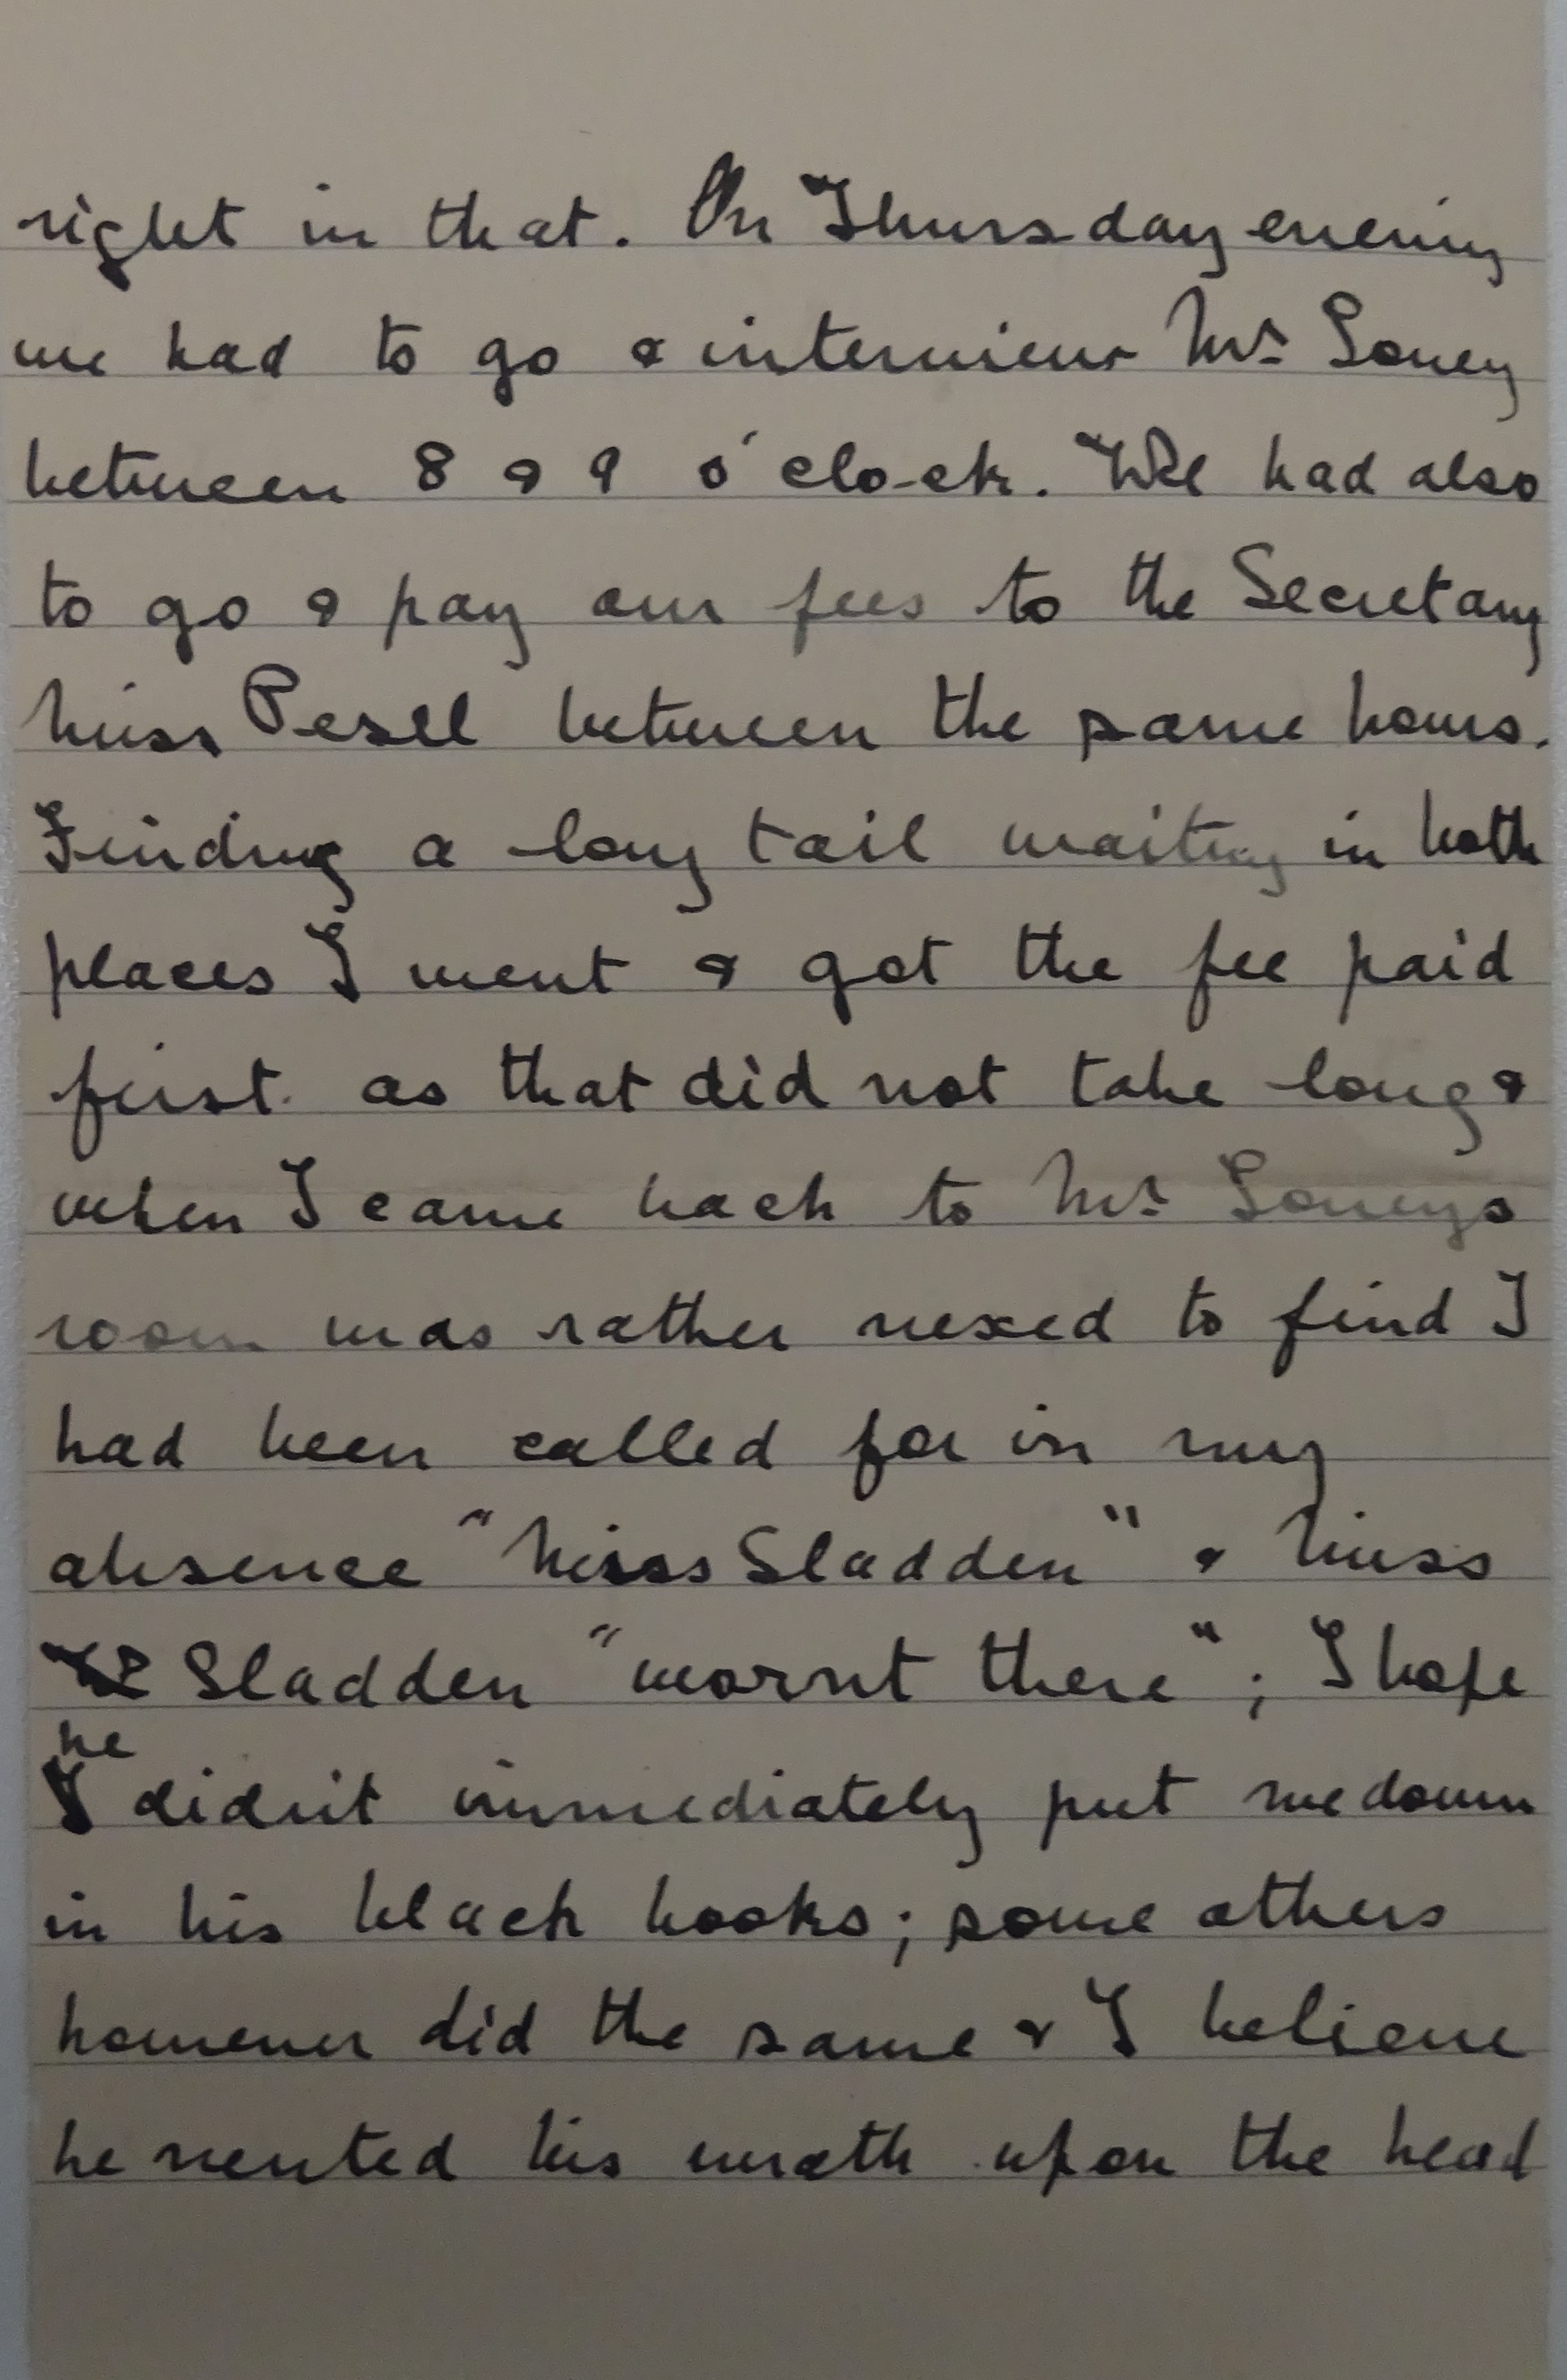 right in that. On Thursday evening
we had to go & interview Mr Soney
between 8 & 9 o'clock. We had also
to go & pay our fees to the Secretary
Miss Pesel between the same hours.
Finding a long tail waiting in both
places I went & got the fee paid
first. as that did not take long &
when I came back to Mr Soneys
room was rather vexed to find I
had been called for in my
absence "Miss Sladden" & Miss
Sladden "warnt there"; I hope
he didn't immediately put me down
in his black books; some others
however did the same & I believe
he vented his wrath upon the head